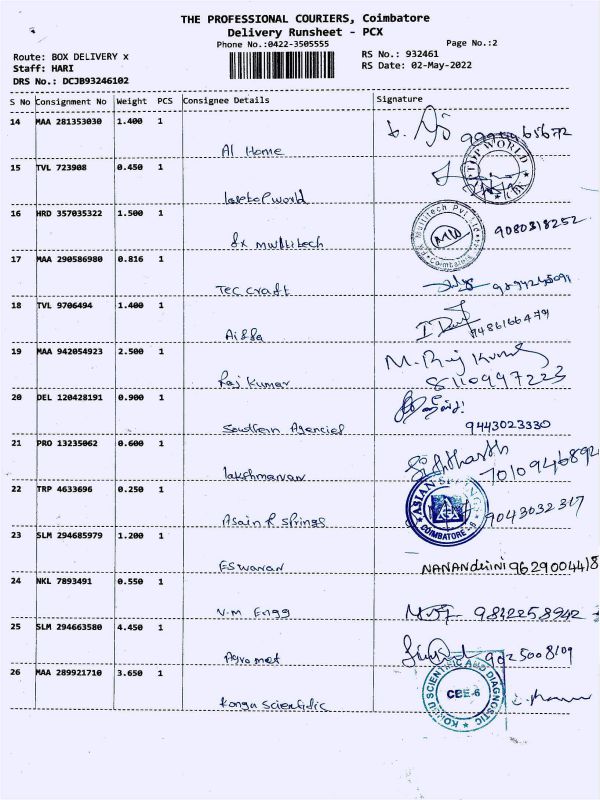 THE PROFESSIONAL COURIERS, Coimbatore
Delivery Runsheet - PCX
Phone No.:0422-3505555
Page No.:2
Route: BOX DELIVERY x
RS No.: 932461
Staff: HARI
RS Date: 02-May-2022
DRS No.: DCJB93246102
S No Consignment No Weight PCS Consignee Details Signature
14 MAA 281353030 1.400 1
Al Home
15 TVL 723908 0.450 1
world
16 HRD 357035322 1.500 1
multitech
9080318252
17 MAA 290586980 0.816 1
Tec craft
18 TVL 9706494 1.400 1
19 MAA 942054923 2.500 1
Raj Kumar
M. Raj Kumar
8110997223
20 DEL 120428191 0.900 1
Southern Agencies
9443023330
21 PRO 13235062 0.600 1
lakshmanan
Sidhtharth
7010946892
22 TRP 4633696 0.250 1
Asain R Springs
COIMBATORE - 6
9043032317
23 SLM 294685979 1.200 1
ESwaran
9629004418
24 NKL 7893491 0.550 1
V.M Engg
25 SLM 294663580 4.450 1
9025008109
26 MAA 289921710 3.650 1
Kongu Scientific
KONGU SCIENTIFIC AND DIAGNOSTIC
CBE-6